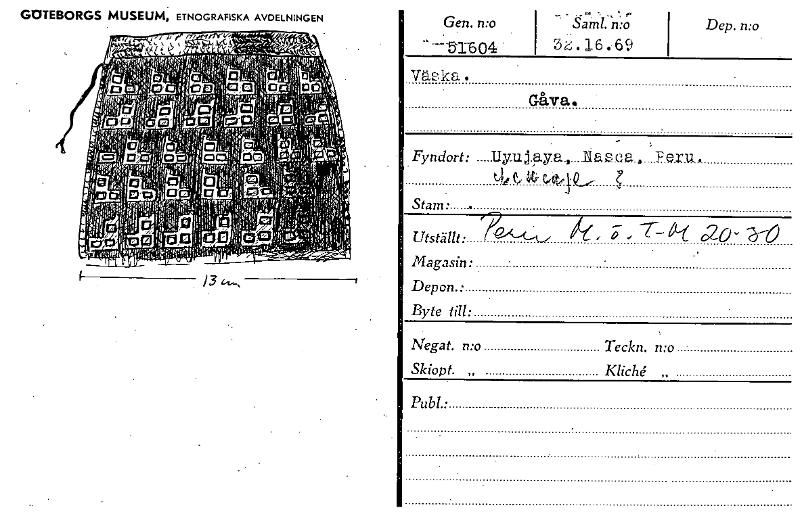 GÖTEBORGS MUSEUM, ETNOGRAFISKA AVDELNINGEN
13 cm
Gen. n:o
51604
Saml. n:o
32.16.69
Dep. n:o
Väska.
Gåva.
Fyndort: Uyujaya, Nasca, Peru.
?
Stam:
Utställt: Peru M. ö. T-M 20-30
Magasin:
Depon.:
Byte till:
Negat. n:o Teckn. n:o
Skiopt. „ Kliché „
Publ.: